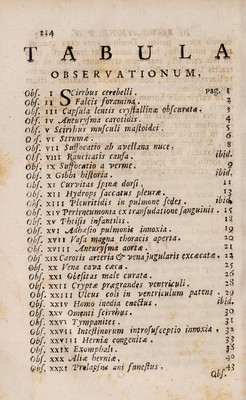 244
TABULA
OBSERVATIONUM.
Obs. I Scirrhus cerebelli. pag. 1
Obs. II Falcis foramina. 2
Obs. III Capsula lentis crystallinæ obscurata. 3
Obs. IV Aneurysma carotidis. 4
Obs. V Scirrhus musculi mastoidei. 5
Obs. VI Strumæ. 6
Obs. VII Suffocatio ab avellana nuce. 8
Obs. VIII Raucitatis causa. ibid.
Obs. IX Suffocatio a verme. 9
Obs. X Gibbi historia. ibid.
Obs. XI Curvitas spinæ dorsi. 11
Obs. XII Hydrops saccatus pleuræ. 13
Obs. XIII Pleuritidis in pulmone sedes. ibid.
Obs. XIV Peripneumonia ex transudatione sanguinis. 15
Obs. XV Phtisis infantilis. 18
Obs. XVI Adhæsio pulmonis innoxia. 19
Obs. XVII Vasa magna thoracis aperta. 20
Obs. XVIII Aneurysma aortæ. 21
Obs. XIX Carotis arteria & vena jugularis excæcatæ. 22
Obs. XX Vena cava cæca. 25
Obs. XXI Obesitas male curata. 26
Obs. XXII Cryptæ prægrandes ventriculi. 28
Obs. XXIII Ulcus coli in ventriculum patens. 29
Obs. XXIV Homo inedia enectus. ibid.
Obs. XXV Omenti scirrhus. 30
Obs. XXVI Tympanites. 31
Obs. XXVII Intestinorum introsusceptio innoxia. 32
Obs. XXVIII Herniæ congenitæ. 33
Obs. XXIX Exomphali. 38
Obs. XXX Aliæ herniæ. 40
Obs. XXXI Prolapsus ani funestus. 43
Obs.